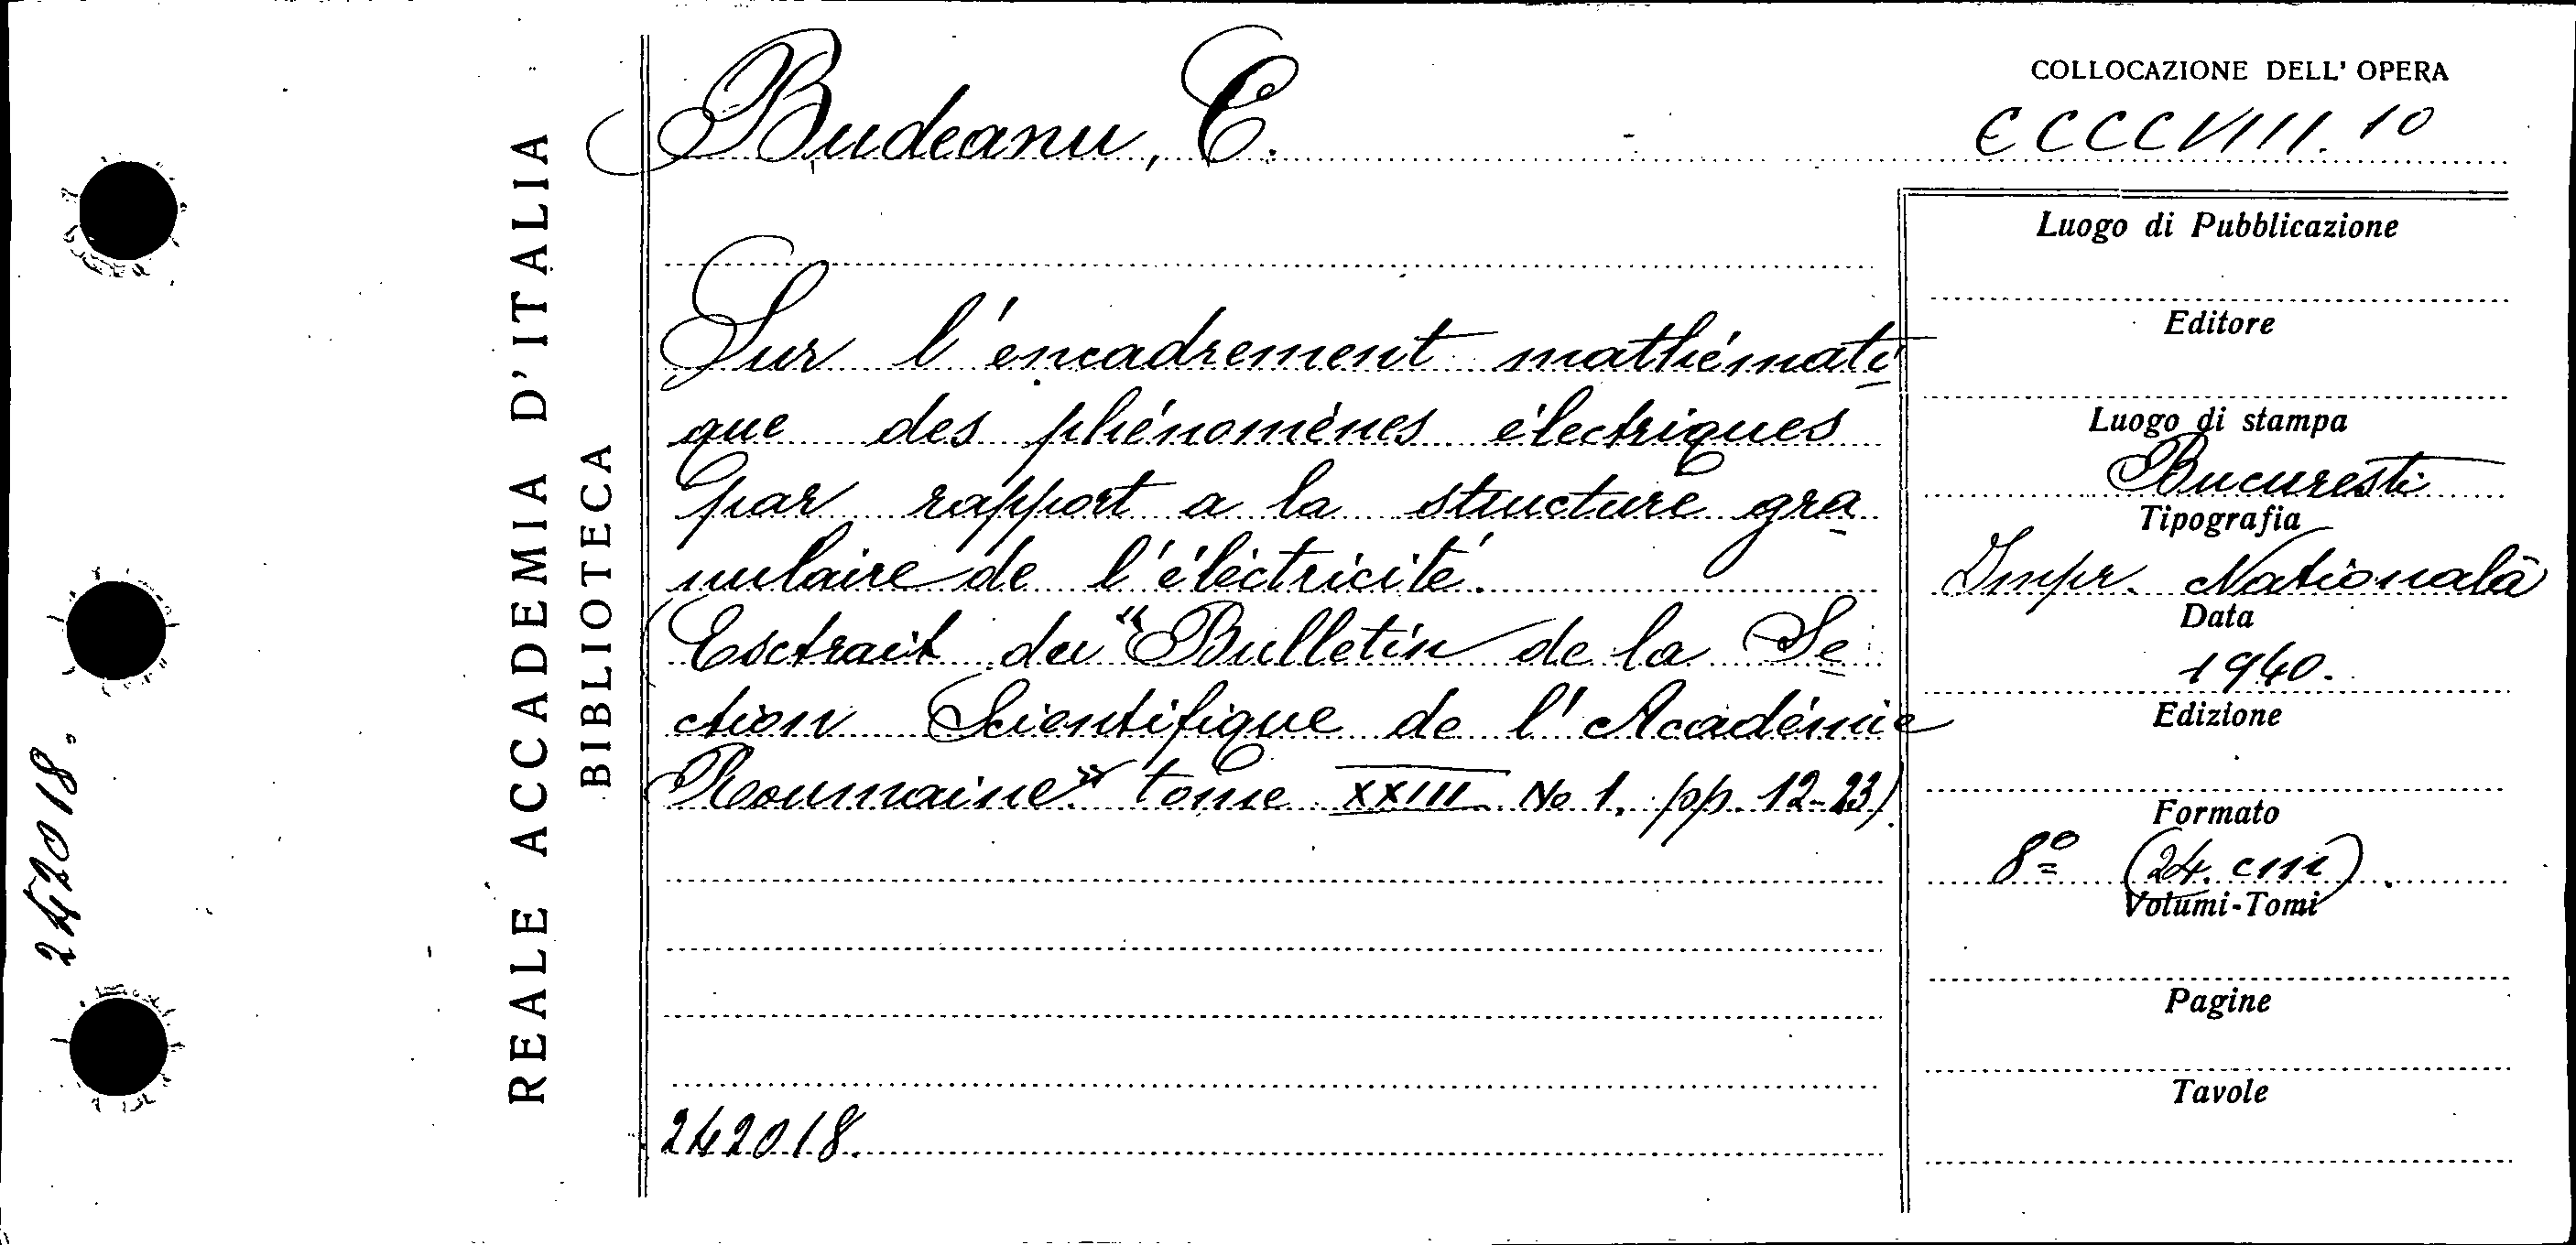 242018.
REALE ACCADEMIA D'ITALIA
BIBLIOTECA
Budeanu, C.
Sur l'encadrement mathémati
que des phénomènes électriques
par rapport a la structure gra
nulaire de l'électricité.
(Esctrait du "Bulletin de la Se
ction Scientifique de l'Académie
Roumaine" tome XXIII No 1. pp. 12-23)
242018.
COLLOCAZIONE DELL' OPERA
CCCCVIII. 10
Luogo di Pubblicazione
Editore
Luogo di stampa
Bucuresti
Tipografia
Impr. Natională
Data
1940.
Edizione
Formato
8º (24. cm).
Volumi-Tomi
Pagine
Tavole